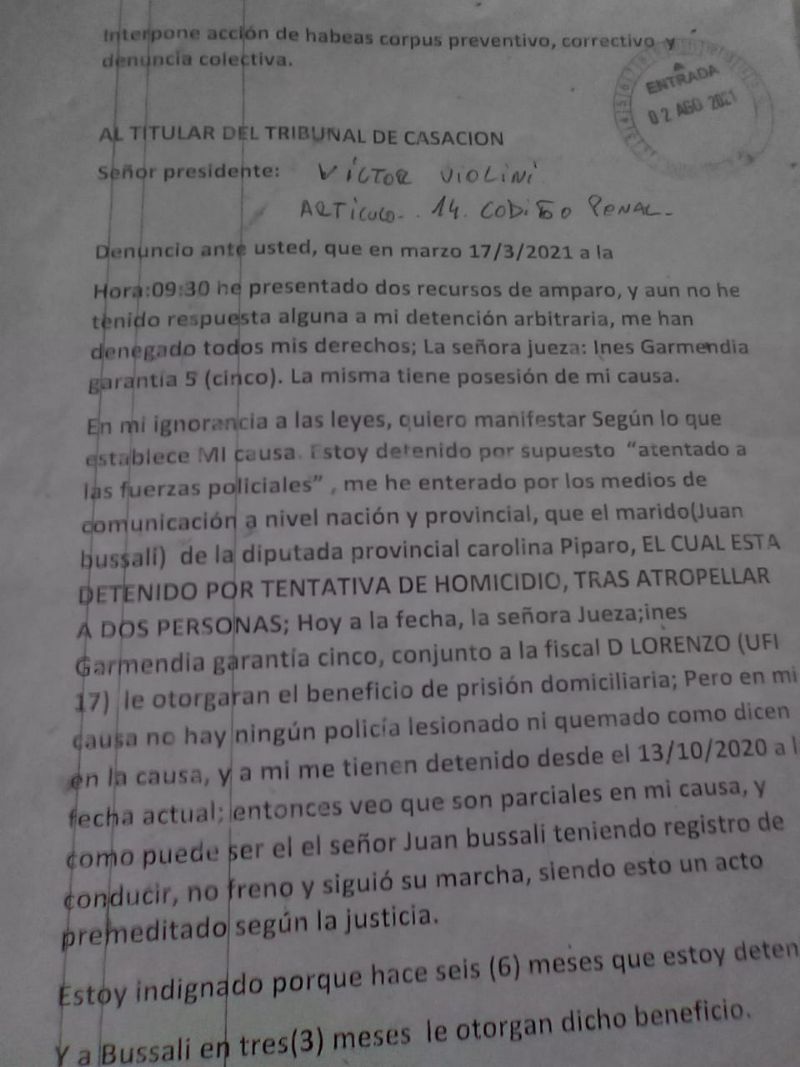 Interpone acción de habeas corpus preventivo, correctivo y
denuncia colectiva.
ENTRADA
02 AGO 2021
AL TITULAR DEL TRIBUNAL DE CASACION
Señor presidente: VÍCTOR VIOLINI
ARTÍCULO.. 14. CODIGO PENAL.-
Denuncio ante usted, que en marzo 17/3/2021 a la
Hora:09:30 he presentado dos recursos de amparo, y aun no he
tenido respuesta alguna a mi detención arbitraria, me han
denegado todos mis derechos; La señora jueza: Ines Garmendia
garantía 5 (cinco). La misma tiene posesión de mi causa.
En mi ignorancia a las leyes, quiero manifestar Según lo que
establece MI causa. Estoy detenido por supuesto "atentado a
las fuerzas policiales" , me he enterado por los medios de
comunicación a nivel nación y provincial, que el marido(Juan
bussali) de la diputada provincial carolina Piparo, EL CUAL ESTA
DETENIDO POR TENTATIVA DE HOMICIDIO, TRAS ATROPELLAR
A DOS PERSONAS; Hoy a la fecha, la señora Jueza;ines
Garmendia garantía cinco, conjunto a la fiscal D LORENZO (UFI
17) le otorgaran el beneficio de prisión domiciliaria; Pero en mi
causa no hay ningún policía lesionado ni quemado como dicen
en la causa, y a mi me tienen detenido desde el 13/10/2020 a l
fecha actual; entonces veo que son parciales en mi causa, y
como puede ser el el señor Juan bussali teniendo registro de
conducir, no freno y siguió su marcha, siendo esto un acto
premeditado según la justicia.
Estoy indignado porque hace seis (6) meses que estoy deten
Y a Bussali en tres(3) meses le otorgan dicho beneficio.